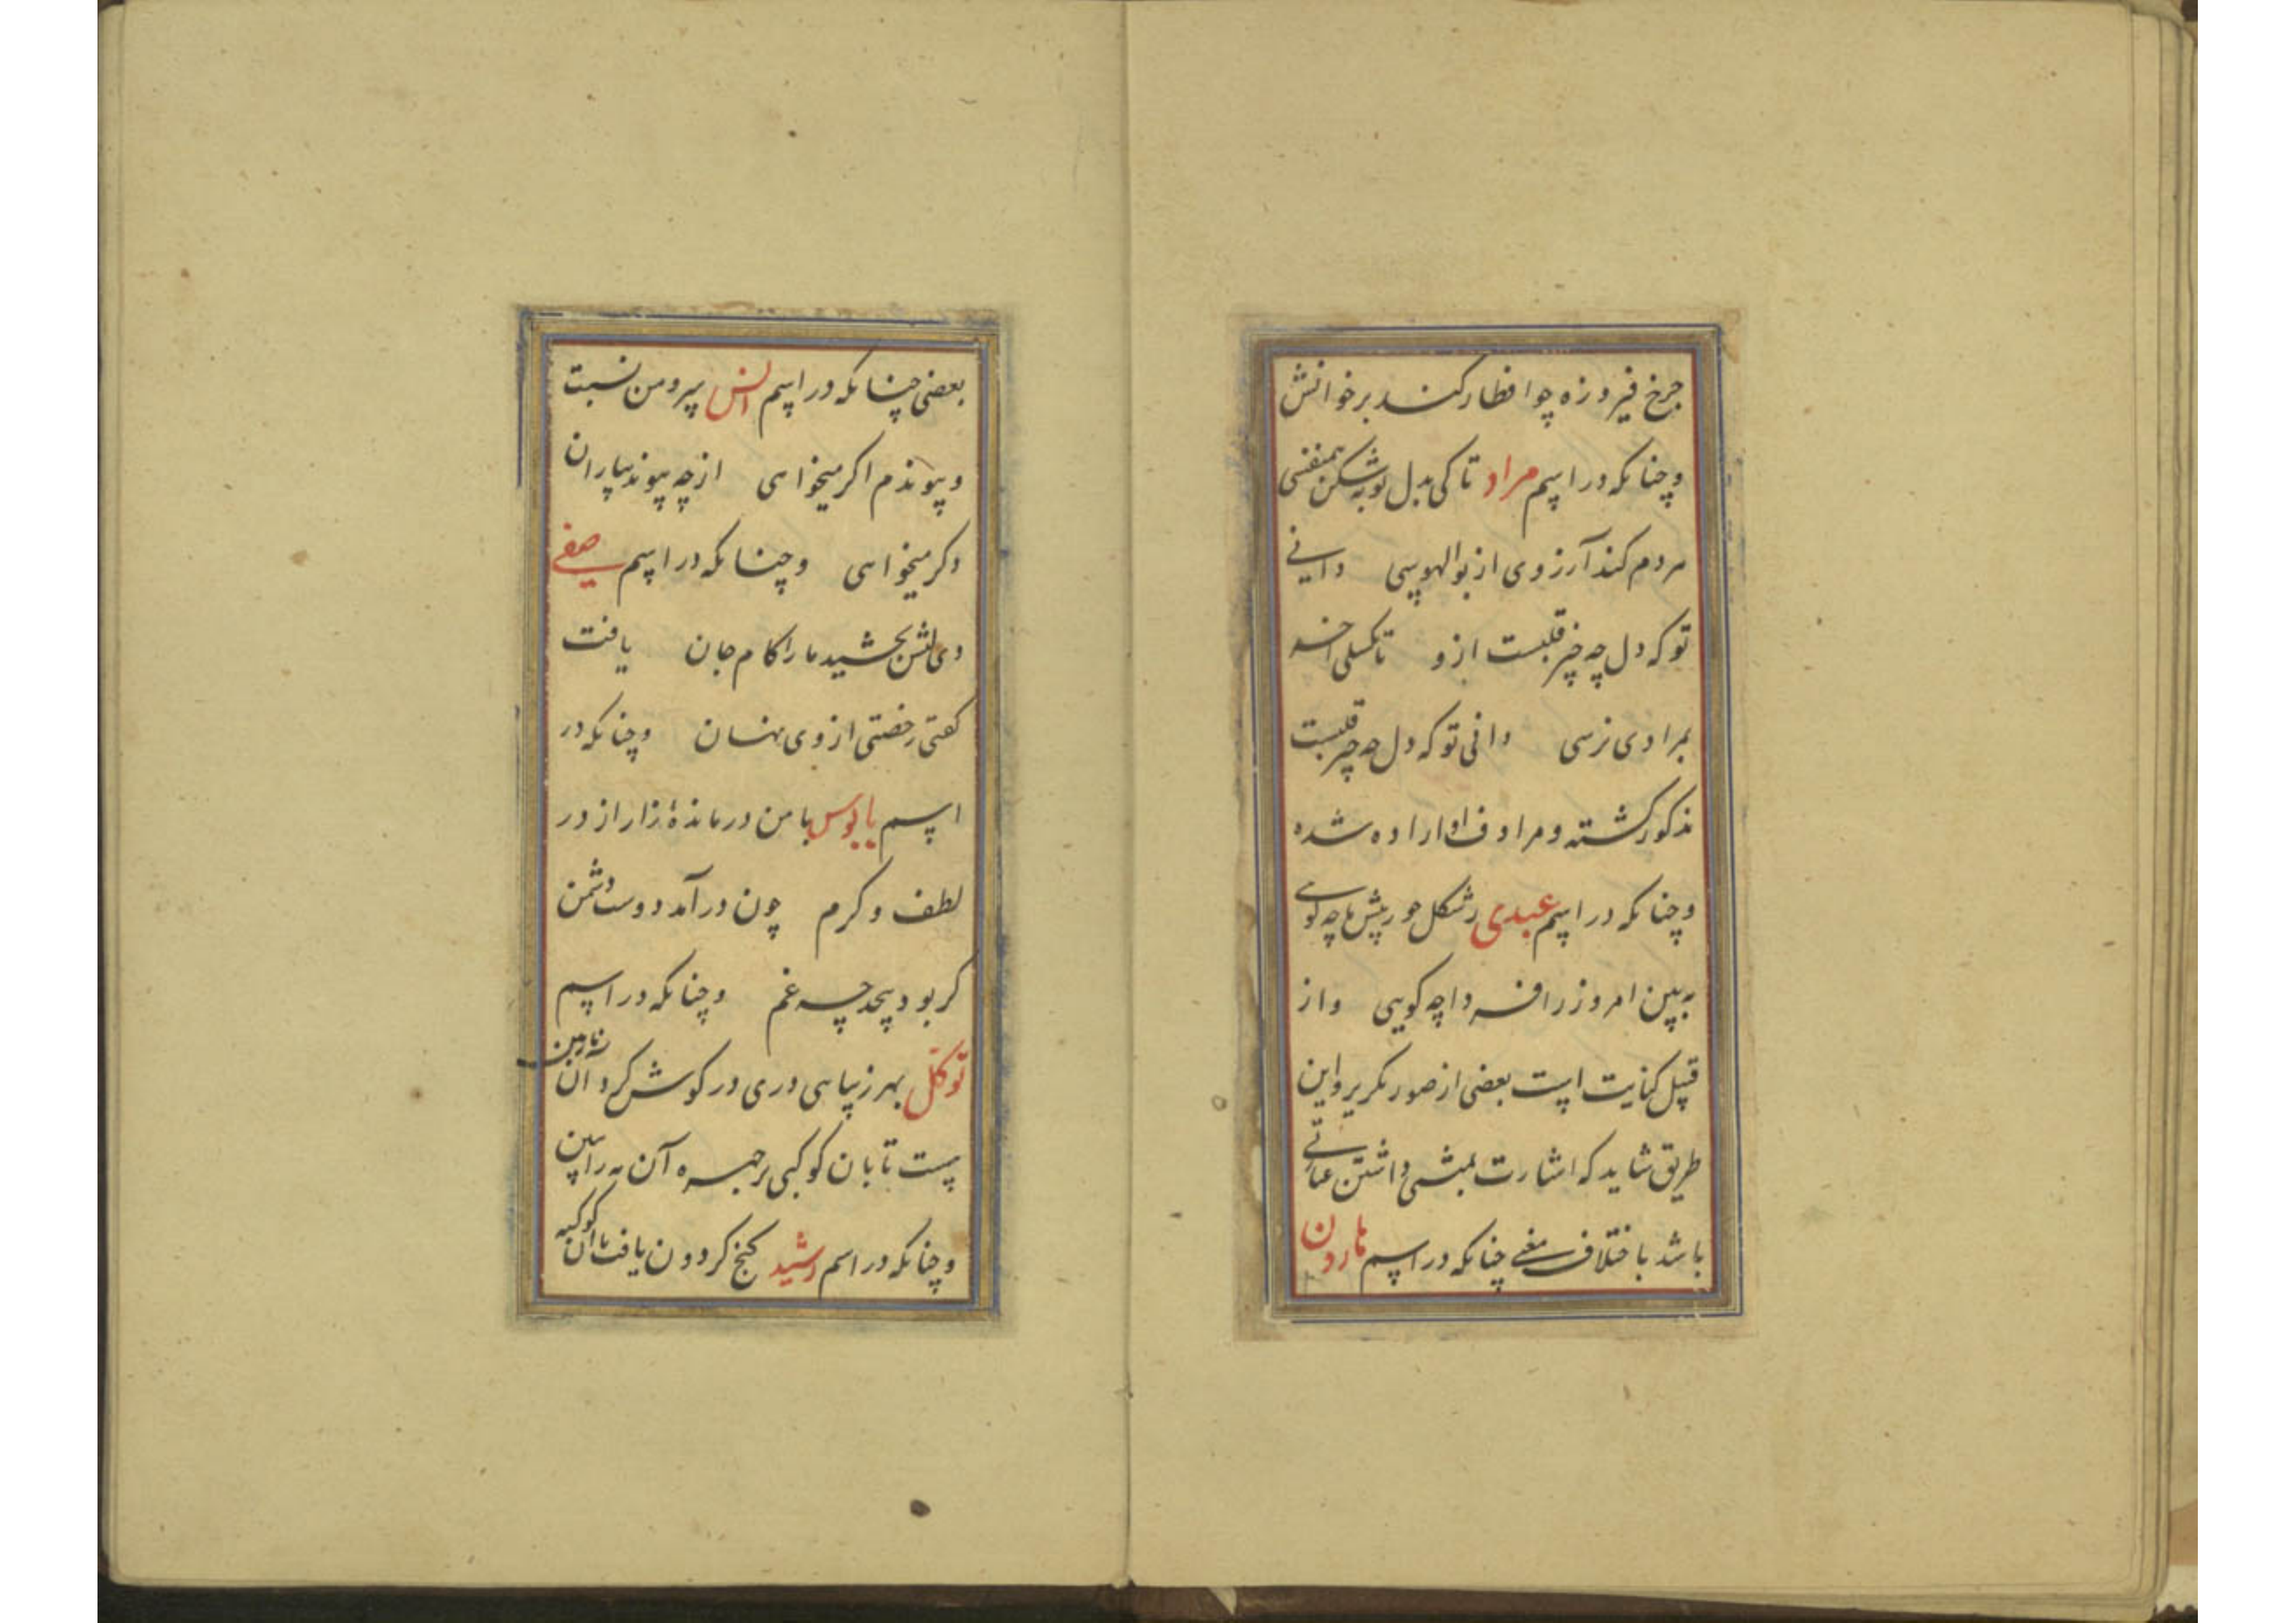 چرخ فیروزه چو افطار کند بر خوانش
وچنانکه در اسم مراد تا کی بدل توبه شکن همنفسی
مردم کند آرزوی از بوالهوسی دانی
تو که دل چه چیز قلبست ازو تا نگسلی آخر
بمرادی نرسی دانی تو که دل چه چیز قلبست
مذکور گشته و مرادف او اراده شده
وچنانکه در اسم عبدی ز شکل حور پیش ما چه کوی
به بین امروز را فردا چه کویی واز
قبیل کنایت است بعضی از صور تکریر واین
طریق شاید که اشارت بمثنی داشتن عبارتی
باشد باختلاف معنی چنانکه در اسم هارون
بعضی چنانکه در اسم انس پیرو من نسبت
وپیوندم اکر میخواهی از چه پیوند بیاران
دکر میخواهی وچنانکه در اسم صفی
دی لبش بخشید ما را کام جان یافت
کفتی رخصتی از وی نهان وچنانکه در
اسم بابوس با من درمانده زار از در
لطف وکرم چون درآمد دوست دشمن
کر بود بیحد چه غم وچنانکه در اسم
توکل بهر زیبایی دری در کوش کرد آن نازنین
بست تابان کوکبی بر چهره آن مه را ببین
وچنانکه در اسم رشید کنج کردون یافت با آن کوکبه